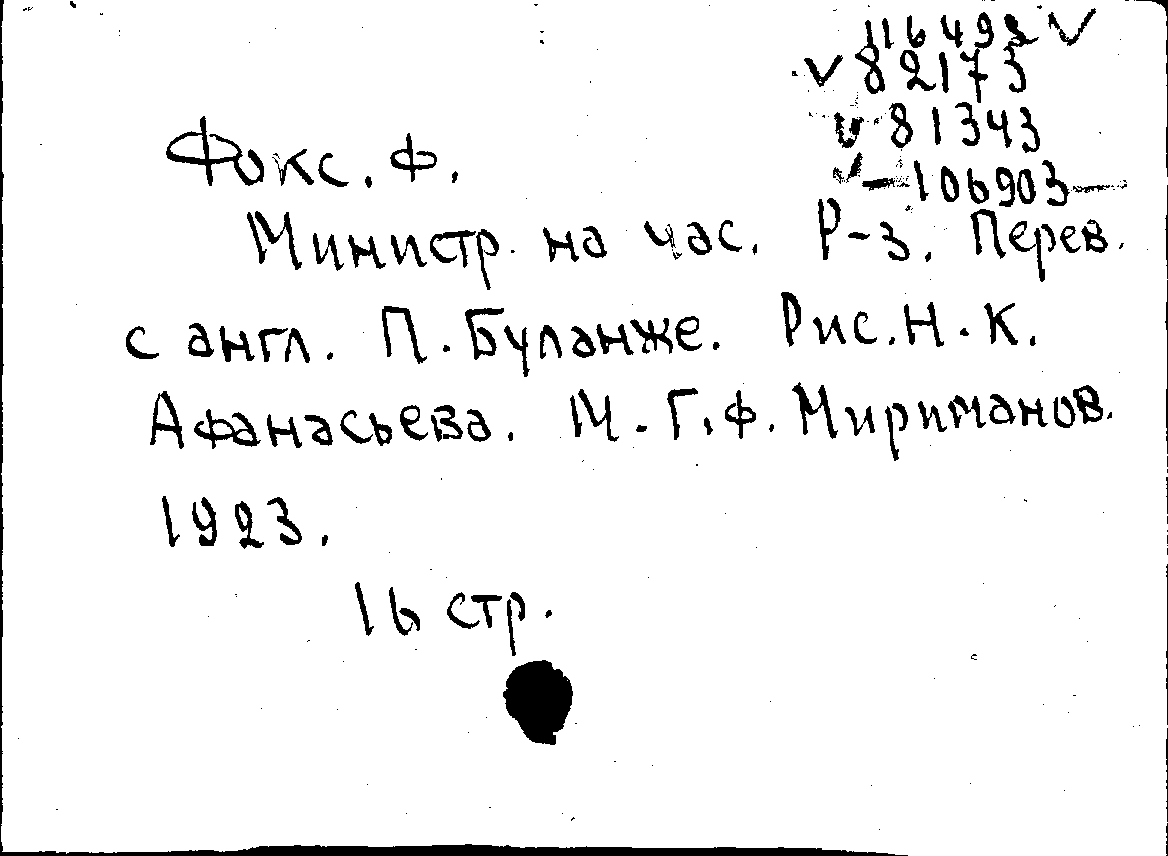 116492 ✓
✓ 82173
✓ 81343
✓ — 106903 —
Фокс. Ф.
Министр на час. Р-з. Перев.
с англ. П. Буланже. Рис. Н. К.
Афанасьева. М. Г. Ф. Мириманов.
1923.
16 стр.